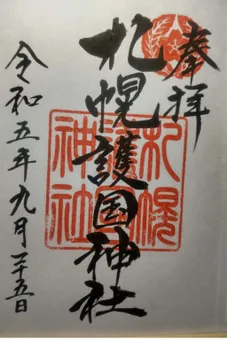 奉拝
札幌護国神社
札幌護国神社
令和五年九月二十五日